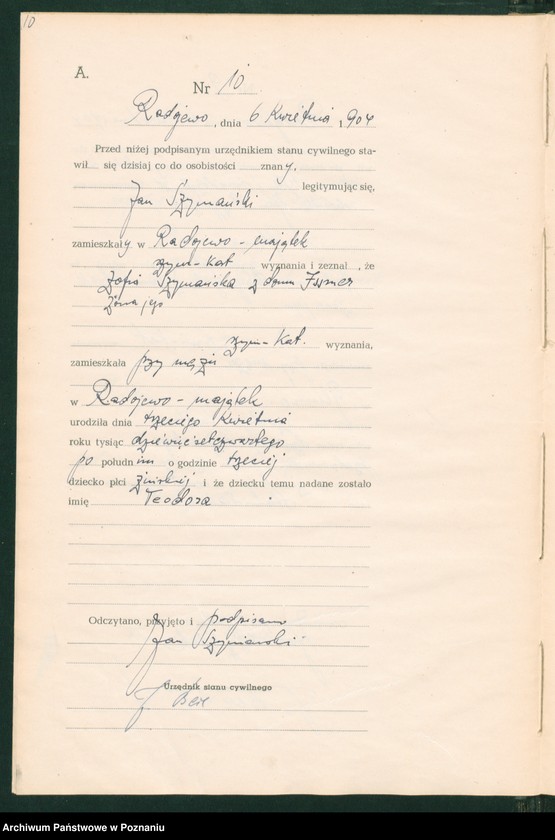 10
A.
Nr 10
Radojewo, dnia 6 Kwietnia 1904
Przed niżej podpisanym urzędnikiem stanu cywilnego sta-
wił się dzisiaj co do osobistości znany.
legitymując się,
Jan Szymański
zamieszkały w Radojewo - majątek
rzym-kat wyznania i zeznał, że
Zofia Szymańska z domu
żona jego
rzym-Kat. wyznania,
zamieszkała przy mężu
w Radojewo - majątek
urodziła dnia trzeciego Kwietnia
roku tysiąc dziewięćsetczwartego
po południu o godzinie trzeciej
dziecko płci żeńskiej i że dziecku temu nadane zostało
imię Teodora
Odczytano, przyjęto i podpisano
Jan Szymanski
Urzędnik stanu cywilnego
Archiwum Państwowe w Poznaniu